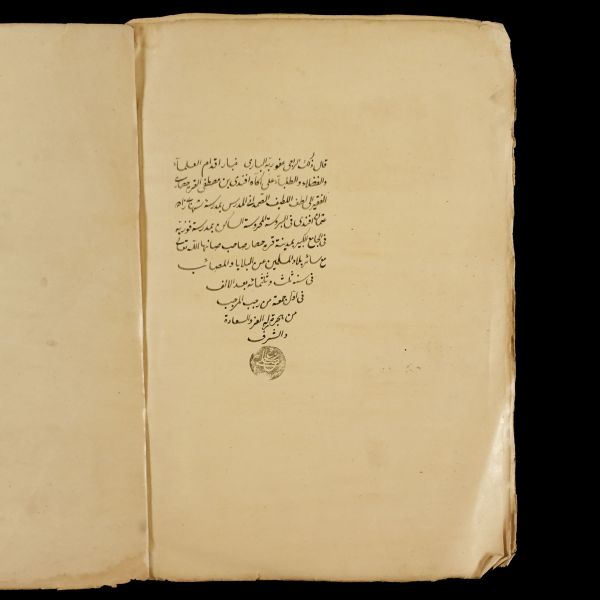 قال ذلك الراجى عفو ربه البارى غبار اقدام العلماء
والفضلاء والطلباء على اكاه افندى بن مصطفى القره حصارى
الفقير الى لطف اللطيف الصمد المدرس بمدرسة
افندى فى البروسة المحروسة الساكن بمدرسة فوزيه
فى الجامع الكبير بمدينة قره حصار صاحب صانها الله تعالى
مع سائر بلاد المسلمين عن البلايا والمصائب
فى سنة ثلث وثلثمائة بعد الالف
فى اول جمعة من رجب المرجب
من هجرة له العز والسعادة
والشرف